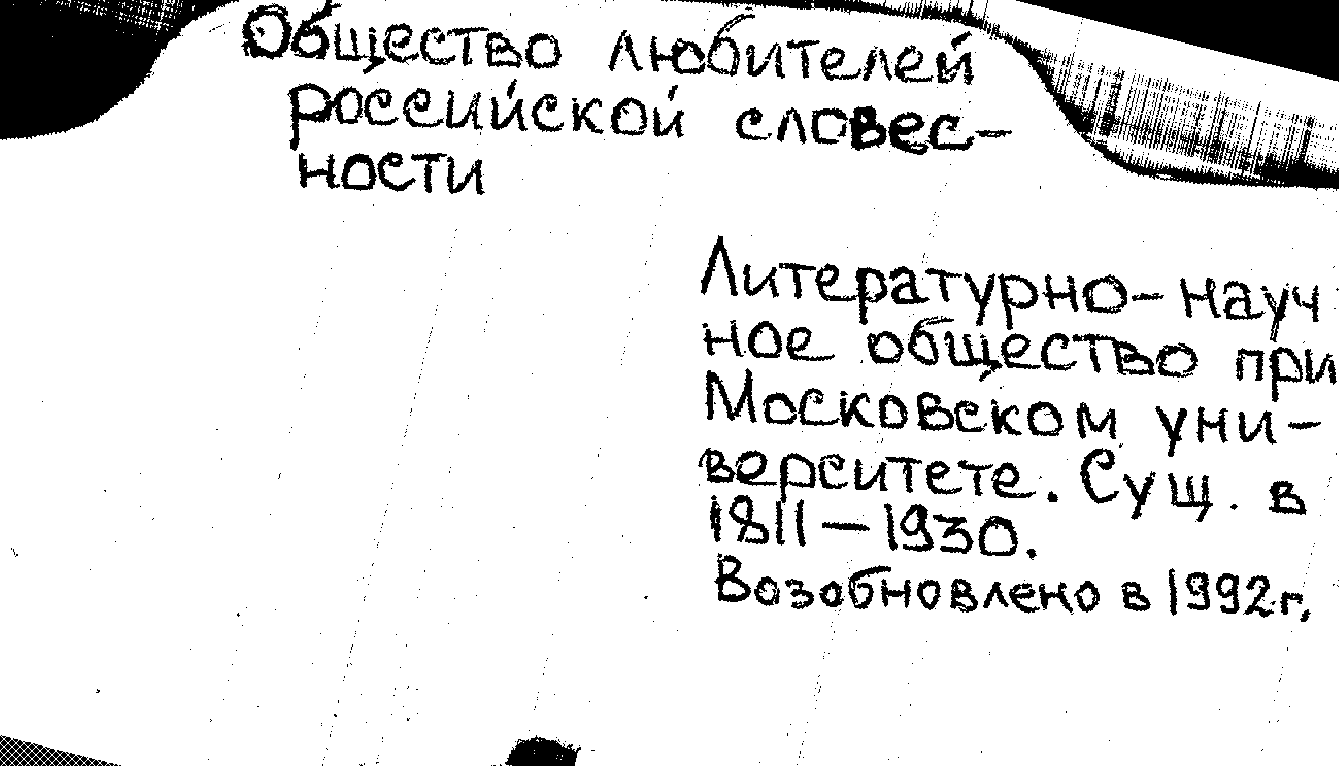 Общество любителей
российской словес-
ности
Литературно-науч
ное общество при
Московском уни-
верситете. Сущ. в
1811-1930.
Возобновлено в 1992г.